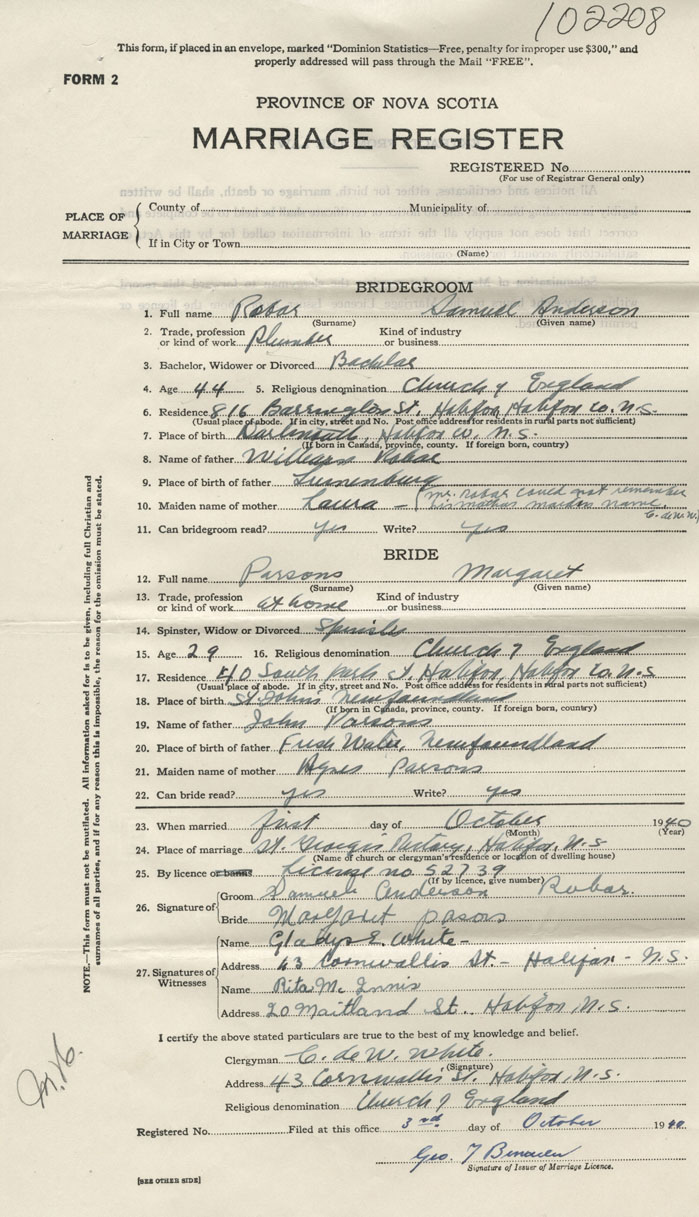 102208
This form, if placed in an envelope, marked "Dominion Statistics—Free, penalty for improper use $300," and
properly addressed will pass through the Mail "FREE".
FORM 2
PROVINCE OF NOVA SCOTIA
MARRIAGE REGISTER
REGISTERED No.
(For use of Registrar General only)
PLACE OF MARRIAGE
County of Municipality of
If in City or Town
(Name)
BRIDEGROOM
1. Full name Robar Samuel Anderson
(Surname) (Given name)
2. Trade, profession or kind of work Plumber Kind of industry or business
3. Bachelor, Widower or Divorced Bachelor
4. Age 44 5. Religious denomination Church of England
6. Residence 816 Barrington St. Halifax, Halifax Co. N.S.
(Usual place of abode. If in city, street and No. Post office address for residents in rural parts not sufficient)
7. Place of birth Dartmouth, Halifax Co. N.S.
(If born in Canada, province, county. If foreign born, country)
8. Name of father William Robar
9. Place of birth of father Lunenburg
10. Maiden name of mother Laura — (Mr. Robar could not remember
his mother maiden name.
C. deW.W.)
11. Can bridegroom read? yes Write? yes
BRIDE
12. Full name Parsons Margaret
(Surname) (Given name)
13. Trade, profession or kind of work at home Kind of industry or business
14. Spinster, Widow or Divorced Spinster
15. Age 29 16. Religious denomination Church of England
17. Residence 40 South Park St, Halifax, Halifax Co. N.S
(Usual place of abode. If in city, street and No. Post office address for residents in rural parts not sufficient)
18. Place of birth St. Johns Newfoundland
(If born in Canada, province, county. If foreign born, country)
19. Name of father John Parsons
20. Place of birth of father Fresh Water, Newfoundland
21. Maiden name of mother Agnes Parsons
22. Can bride read? yes Write? yes
23. When married first day of October 1940
(Month) (Year)
24. Place of marriage St. George's Rectory, Halifax, N.S
(Name of church or clergyman's residence or location of dwelling house)
25. By licence or banns License no. 52739
(If by licence, give number)
26. Signature of
Groom Samuel Anderson Robar.
Bride Margaret Pasons
27. Signatures of Witnesses
Name Gladys E. White -
Address 43 Cornwallis St. - Halifax - N.S.
Name Rita McInnis
Address 20 Maitland St. Halifax, N.S.
I certify the above stated particulars are true to the best of my knowledge and belief.
Clergyman C. de W. White.
(Signature)
Address 43 Cornwallis St. Halifax, N.S.
Religious denomination Church of England
Registered No. Filed at this office 3rd day of October 1940.
Geo. F
Signature of Issuer of Marriage Licence.
[SEE OTHER SIDE]
NOTE.—This form must not be mutilated. All information asked for is to be given, including full Christian and
surnames of all parties, and if for any reason this is impossible, the reason for the omission must be stated.